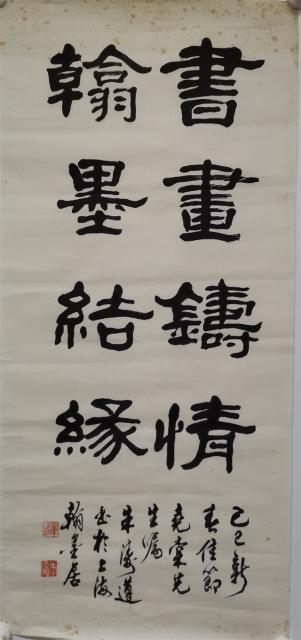 書畫鑄情
翰墨結緣
己巳新
春佳節
堯棠先
生囑
朱濤蓮
書於上海
翰墨居